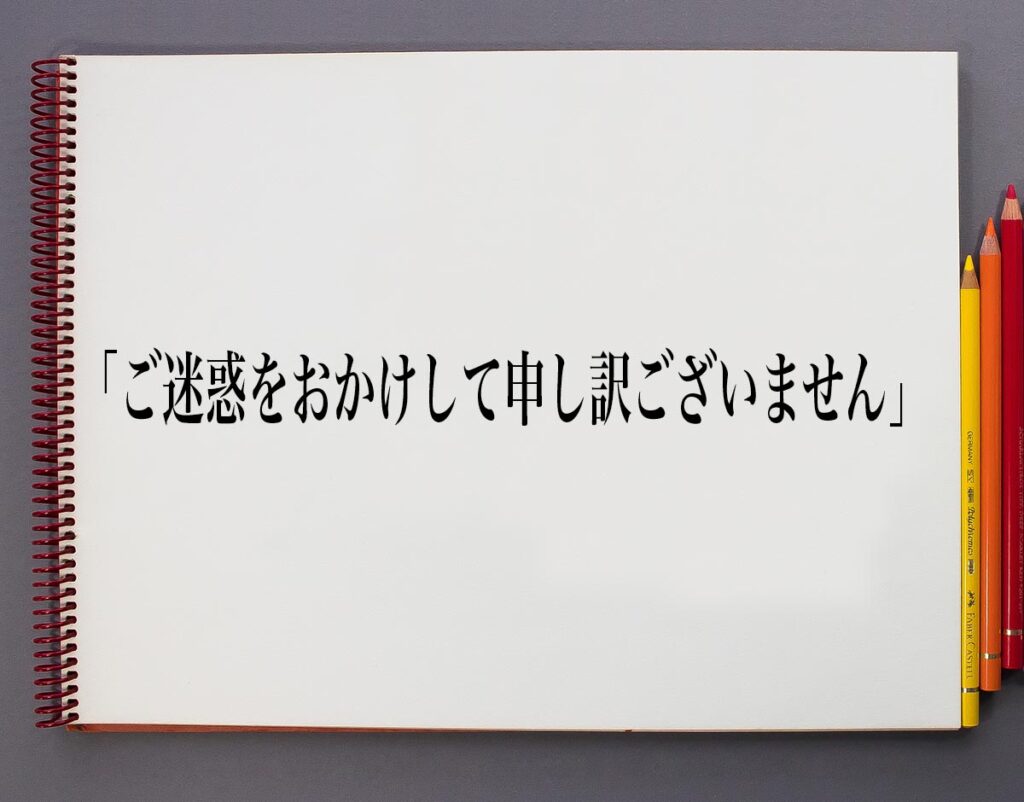 「ご迷惑をおかけして申し訳ございません」
GERMANY
Polychromos
FABER-CASTELL